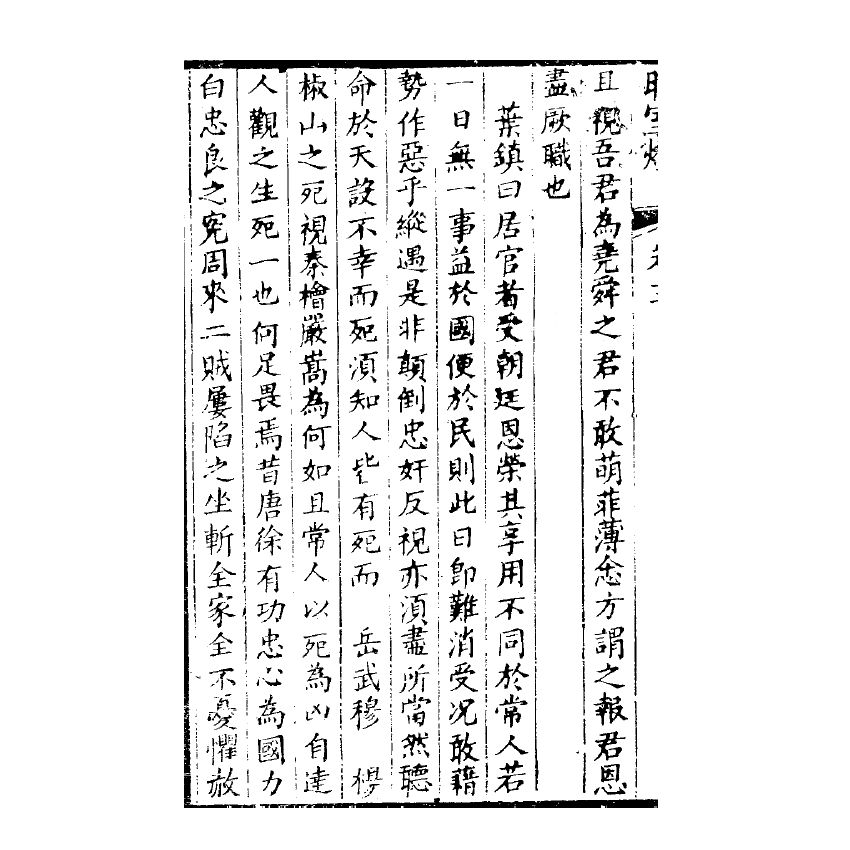 且視吾君為堯舜之君不敢萌菲薄念方謂之報君恩
盡厥職也
葉鎮曰居官者受朝廷恩榮其享用不同於常人若
一日無一事益於國便於民則此日即難消受况敢藉
勢作惡乎縱遇是非顛倒忠奸反視亦須盡所當然聽
命於天設不幸而死須知人皆有死而 岳武穆 楊
椒山之死視秦檜嚴嵩為何如且常人以死為凶自達
人觀之生死一也何足畏焉昔唐徐有功忠心為國力
白忠良之寃周來二賊屢陷之坐斬全家全不憂懼放